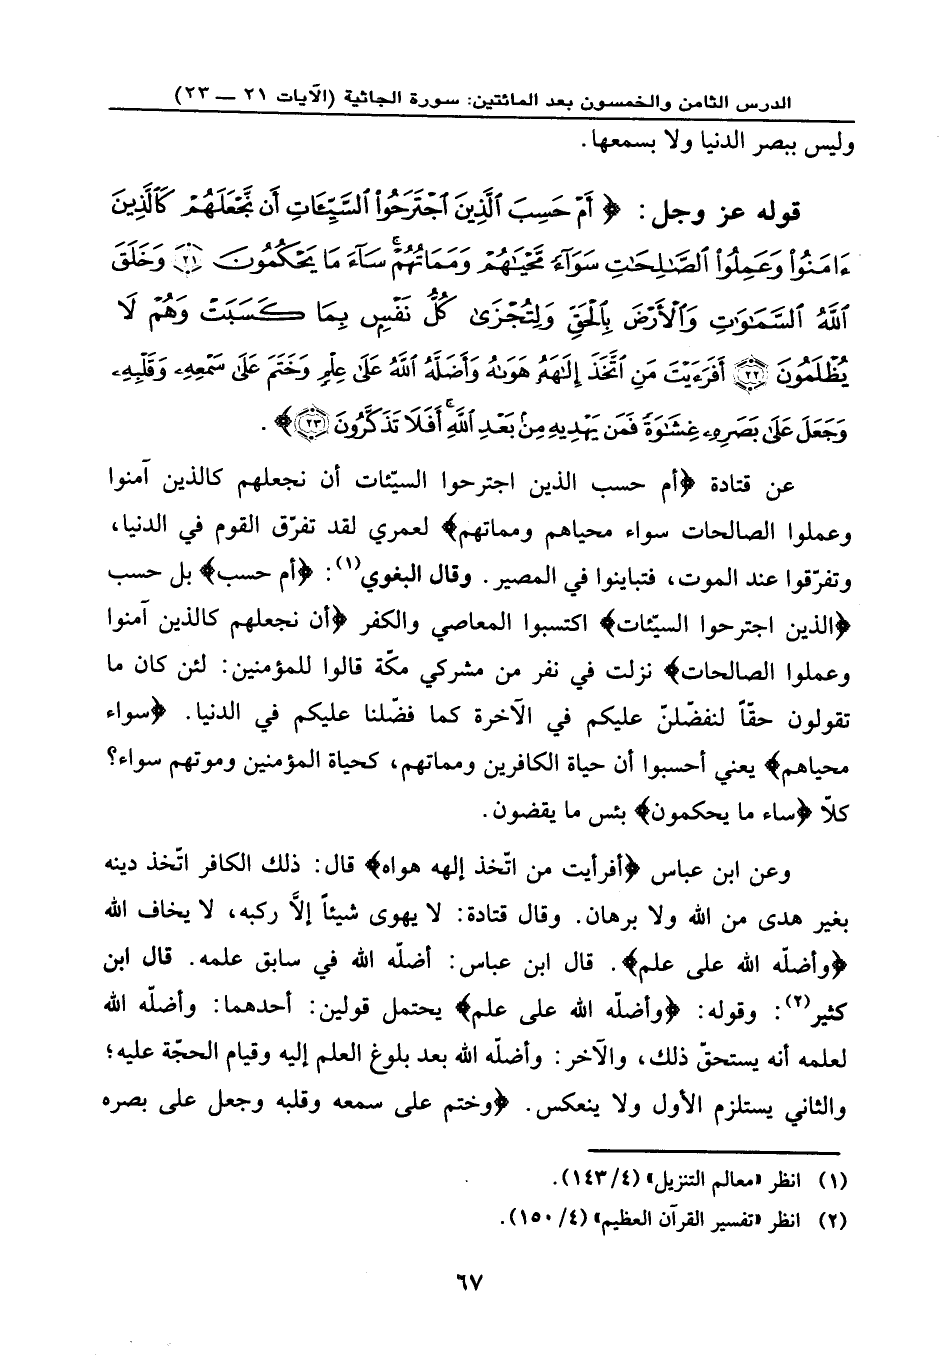 الدرس الثامن والخمسون بعد المائتين: سورة الجاثية (الآيات ٢١ — ٢٣)
وليس ببصر الدنيا ولا بسمعها.
قوله عز وجل: ﴿ أَمْ حَسِبَ ٱلَّذِينَ ٱجْتَرَحُوا۟ ٱلسَّيِّـَٔاتِ أَن نَّجْعَلَهُمْ كَٱلَّذِينَ
ءَامَنُوا۟ وَعَمِلُوا۟ ٱلصَّـٰلِحَـٰتِ سَوَآءً مَّحْيَـٰهُمْ وَمَمَاتُهُمْ ۚ سَآءَ مَا يَحْكُمُونَ ٢١ وَخَلَقَ
ٱللَّهُ ٱلسَّمَـٰوَٰتِ وَٱلْأَرْضَ بِٱلْحَقِّ وَلِتُجْزَىٰ كُلُّ نَفْسٍۭ بِمَا كَسَبَتْ وَهُمْ لَا
يُظْلَمُونَ ٢٢ أَفَرَءَيْتَ مَنِ ٱتَّخَذَ إِلَـٰهَهُۥ هَوَىٰهُ وَأَضَلَّهُ ٱللَّهُ عَلَىٰ عِلْمٍ وَخَتَمَ عَلَىٰ سَمْعِهِۦ وَقَلْبِهِۦ
وَجَعَلَ عَلَىٰ بَصَرِهِۦ غِشَـٰوَةً فَمَن يَهْدِيهِ مِنۢ بَعْدِ ٱللَّهِ ۚ أَفَلَا تَذَكَّرُونَ ٢٣ ﴾.
عن قتادة ﴿أم حسب الذين اجترحوا السيّئات أن نجعلهم كالذين آمنوا
وعملوا الصالحات سواء محياهم ومماتهم﴾ لعمري لقد تفرّق القوم في الدنيا،
وتفرّقوا عند الموت، فتباينوا في المصير. وقال البغوي(١): ﴿أم حسب﴾ بل حسب
﴿الذين اجترحوا السيّئات﴾ اكتسبوا المعاصي والكفر ﴿أن نجعلهم كالذين آمنوا
وعملوا الصالحات﴾ نزلت في نفر من مشركي مكّة قالوا للمؤمنين: لئن كان ما
تقولون حقّاً لنفضّلنّ عليكم في الآخرة كما فضّلنا عليكم في الدنيا. ﴿سواء
محياهم﴾ يعني أحسبوا أن حياة الكافرين ومماتهم، كحياة المؤمنين وموتهم سواء؟
كلّا ﴿ساء ما يحكمون﴾ بئس ما يقضون.
وعن ابن عباس ﴿أفرأيت من اتّخذ إلهه هواه﴾ قال: ذلك الكافر اتّخذ دينه
بغير هدى من الله ولا برهان. وقال قتادة: لا يهوى شيئاً إلاَّ ركبه، لا يخاف الله
﴿وأضلّه الله على علم﴾. قال ابن عباس: أضلّه الله في سابق علمه. قال ابن
كثير(٢): وقوله: ﴿وأضلّه الله على علم﴾ يحتمل قولين: أحدهما: وأضلّه الله
لعلمه أنه يستحقّ ذلك، والآخر: وأضلّه الله بعد بلوغ العلم إليه وقيام الحجّة عليه؛
والثاني يستلزم الأول ولا ينعكس. ﴿وختم على سمعه وقلبه وجعل على بصره
(١) انظر «معالم التنزيل» (١٤٣/٤).
(٢) انظر «تفسير القرآن العظيم» (١٥٠/٤).
٦٧